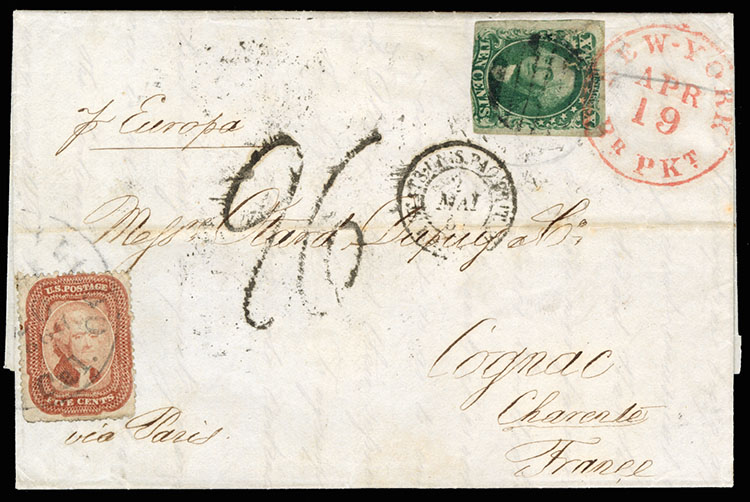 TEN CENTS
NEW-YORK
APR
19
BR PKT
pr Europa
26
2
MAI
Messrs Otard Dupuy & Co.
U.S. POSTAGE
FIVE CENTS
Cognac
Charente
France
via Paris